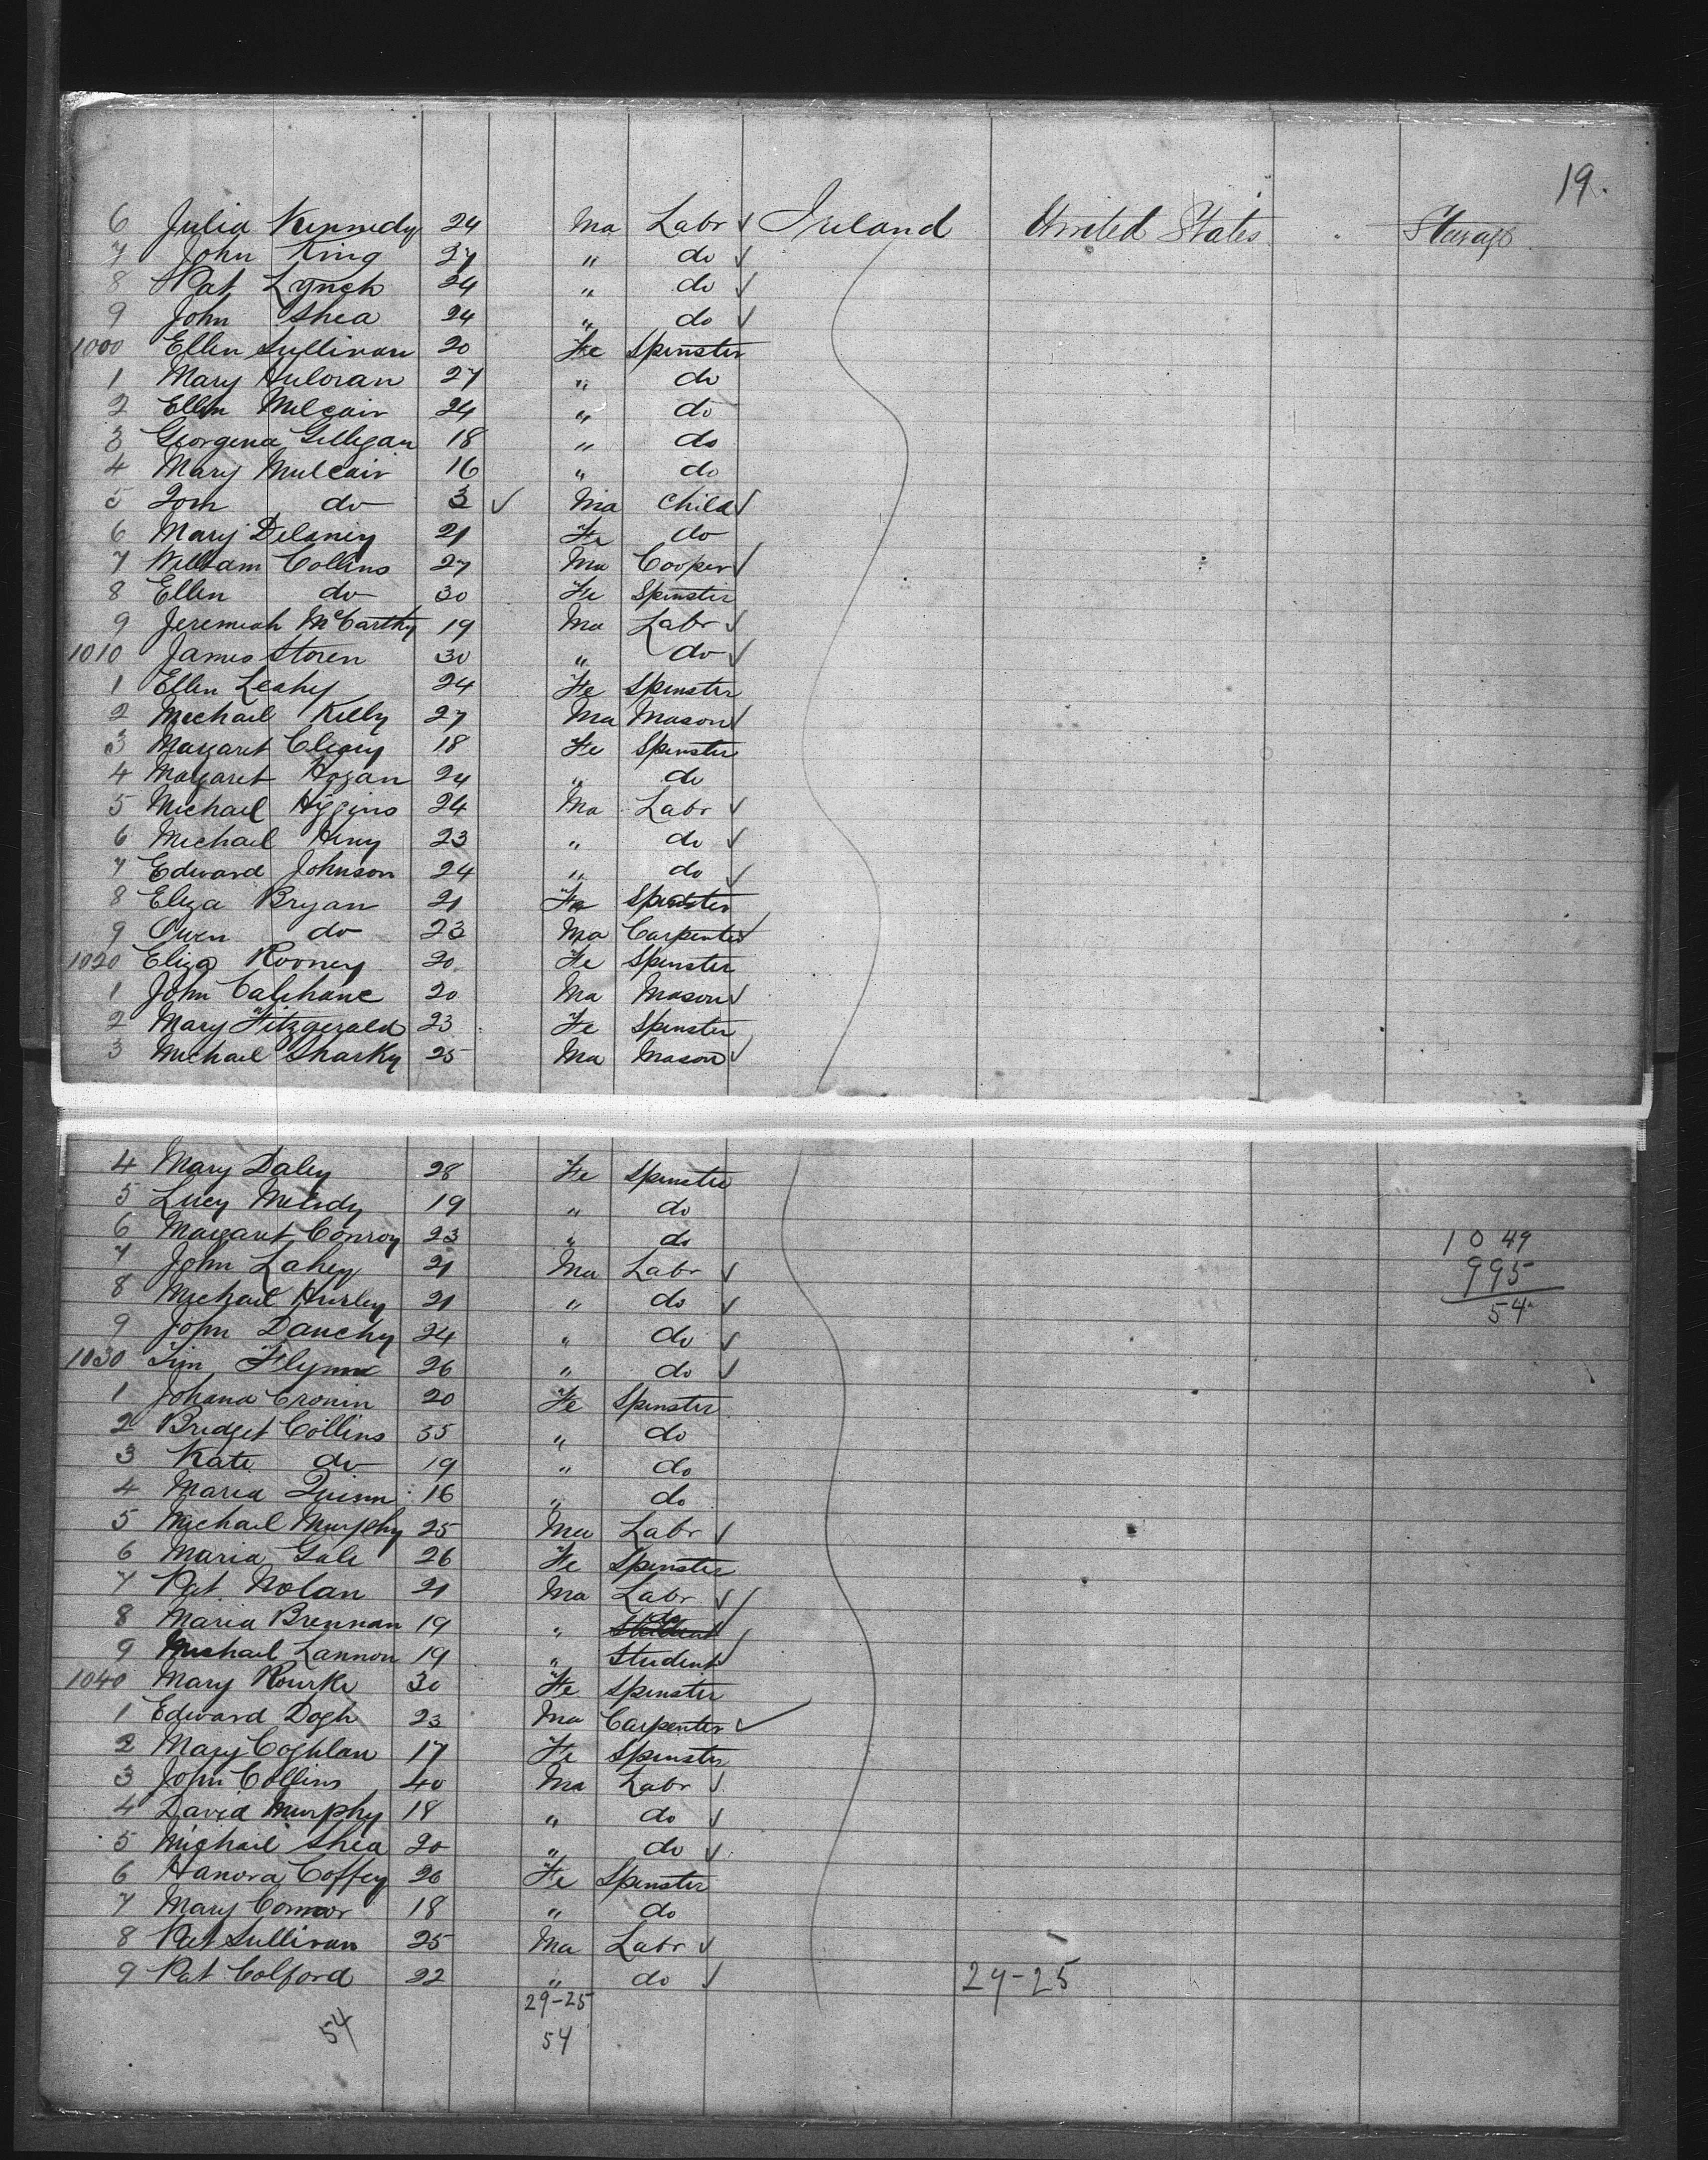 19.
6 Julia Kennedy 24 Ma Labr ✓ Ireland United States Steerage
7 John King 27 " do ✓
8 Pat Lynch 24 " do ✓
9 John Shea 24 " do ✓
1000 Ellen Sullivan 20 Fe Spinster
1 Mary Huloran 27 " do
2 Ellen Mulcair 24 " do
3 Georgena Gilligan 18 " do
4 Mary Mulcair 16 " do
5 Tom do 3 ✓ Ma Child ✓
6 Mary Delaney 21 Fe do
7 William Collins 27 Ma Cooper ✓
8 Ellen do 30 Fe Spinster
9 Jeremiah McCarthy 19 Ma Labr ✓
1010 James Storen 30 " do ✓
1 Ellen Leahy 24 Fe Spinster
2 Michael Kelly 27 Ma Mason ✓
3 Margaret Cleary 18 Fe Spinster
4 Margaret Hogan 24 " do
5 Michael Higgins 24 Ma Labr ✓
6 Michael Heny 23 " do ✓
7 Edward Johnson 24 " do ✓
8 Eliza Bryan 21 Fe Spinster
9 Owen do 23 Ma Carpenter ✓
1020 Eliza Rooney 20 Fe Spinster
1 John Calihane 20 Ma Mason ✓
2 Mary Fitzgerald 23 Fe Spinster
3 Michael Sharky 25 Ma Mason ✓
4 Mary Daley 28 Fe Spinster
5 Lucy Melody 19 " do
6 Margaret Conroy 23 " do 1049
7 John Lahey 21 Ma Labr ✓ 995
8 Michael Hurley 21 " do ✓ 54
9 John Dauchy 24 " do ✓
1030 Tim Flynn 26 " do ✓
1 Johana Cronin 20 Fe Spinster
2 Bridget Collins 35 " do
3 Kate do 19 " do
4 Maria Quinn 16 " do
5 Michael Murphy 25 Ma Labr ✓
6 Maria Gale 26 Fe Spinster
7 Pat Nolan 21 Ma Labr ✓ ✓
8 Maria Brennan 19 " Student do ✓
9 Michael Lannon 19 " Student ✓
1040 Mary Rourke 30 Fe Spinster
1 Edward Dogh 23 Ma Carpenter ✓
2 Mary Coghlan 17 Fe Spinster
3 John Collins 40 Ma Labr ✓
4 David Murphy 18 " do ✓
5 Michael Shea 20 " do ✓
6 Hanora Coffey 26 Fe Spinster
7 Mary Connor 18 " do
8 Pat Sullivan 25 Ma Labr ✓
9 Pat Colford 22 " do ✓ 29-25
29-25
54 54